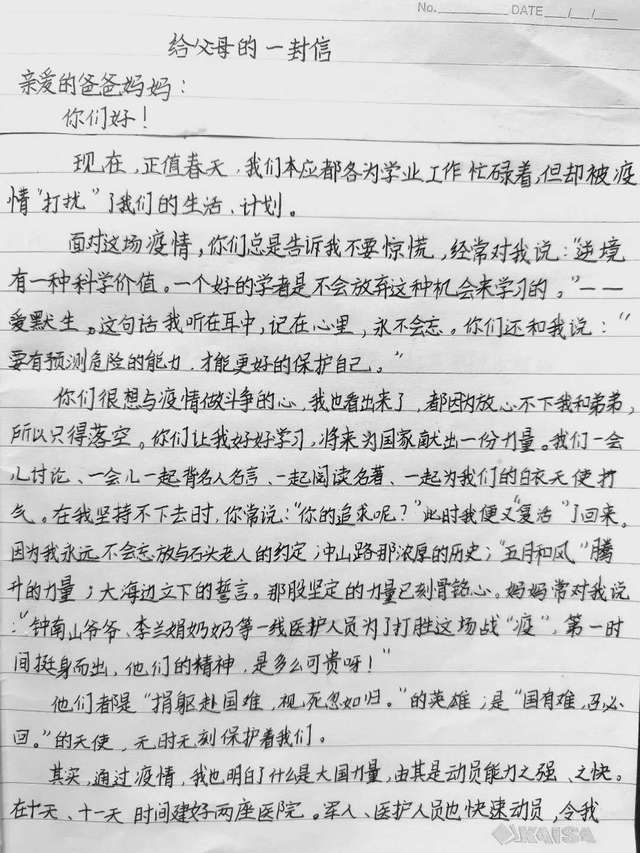 No.________ DATE___/__/__
给父母的一封信
亲爱的爸爸妈妈：
你们好！
现在，正值春天，我们本应都各为学业工作忙碌着，但却被疫
情“打扰”了我们的生活、计划。
面对这场疫情，你们总是告诉我不要惊慌，经常对我说：“逆境
有一种科学价值。一个好的学者是不会放弃这种机会来学习的。”——
爱默生。这句话我听在耳中，记在心里，永不会忘。你们还和我说：“
要有预测危险的能力，才能更好的保护自己。”
你们很想与疫情做斗争的心，我也看出来了，都因为放心不下我和弟弟，
所以只得落空。你们让我好好学习，将来为国家献出一份力量。我们一会
儿讨论、一会儿一起背名人名言、一起阅读名著、一起为我们的白衣天使打
气。在我坚持不下去时，你常说：“你的追求呢？”此时我便又“复活”了回来。
因为我永远不会忘放与石头老人的约定；中山路那浓厚的历史；“五月和风”腾
升的力量；大海边立下的誓言。那股坚定的力量已刻骨铭心。妈妈常对我说
：“钟南山爷爷、李兰娟奶奶等一线医护人员为了打胜这场战“疫”，第一时
间挺身而出，他们的精神，是多么可贵呀！”
他们都是“捐躯赴国难，视死忽如归。”的英雄；是“国有难，召必
回。”的天使，无时无刻保护着我们。
其实，通过疫情，我也明白了什么是大国力量，由其是动员能力之强、之快。
在十天、十一天时间建好两座医院。军人、医护人员也快速动员，令我